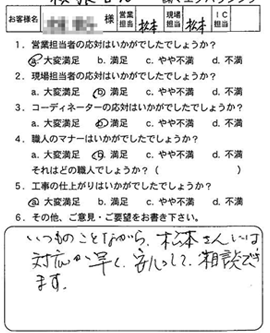 お客様名 様 営業担当 松本 現場担当 松本 IC担当
1．営業担当者の応対はいかがでしたでしょうか？
a. 大変満足 b. 満足 c. やや不満 d. 不満
2．現場担当者の応対はいかがでしたでしょうか？
a. 大変満足 b. 満足 c. やや不満 d. 不満
3．コーディネーターの応対はいかがでしたでしょうか？
a. 大変満足 b. 満足 c. やや不満 d. 不満
4．職人のマナーはいかがでしたでしょうか？
a. 大変満足 b. 満足 c. やや不満 d. 不満
それはどの職人でしょうか？（ ）
5．工事の仕上がりはいかがでしたでしょうか？
a. 大変満足 b. 満足 c. やや不満 d. 不満
6．その他、ご意見・ご要望をお書き下さい。
いつものことながら、松本さんには
対応が早く、安心して、相談でき
ます。